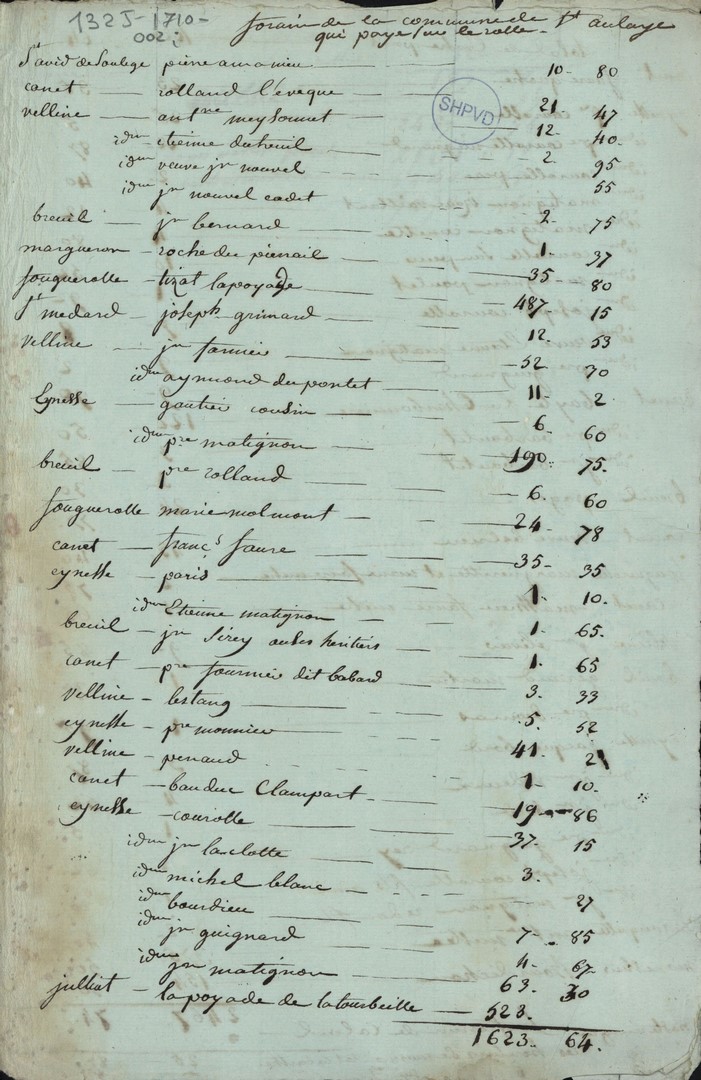 132J-1710-
002;
forain de la commune de St aulaye
qui paye sur le rolle -
St avid de Soulege pierre amamieu 10 - 80
SHPVD
canet - rolland l'eveque 21 47
velline - antne meysonnet 12 40
idm etienne duteuil 2 95
idm veuve jn nouvel 55
idm jn nouvel cadet
breuil - jn bernard 2 75
margueron - roche du pienail 1 37
fouguerolle - tizat lapoyade 35 80
St medard - joseph grimard 487 15
velline - jn fannieu 12 53
idm aymond du pontet 52 70
Eynesse - gautier cousin 11 2
idm pre matignon 6 60
breuil - pre rolland 190 75
fouguerolle marie molmont 6 60
canet - françs faure 24 78
eynesse - paris 35 35
idm Etienne matignon 1 10
breuil - jn Sirey ou les heritiers 1 65
canet - pre fournieu dit babard 1 65
velline - lestang 3 33
eynesse - pre monnieu 5 52
velline - penaud 41 2
canet - bauduc Clampart 1 10
eynesse - courolle 19 - 86
idm jn laclotte 37 15
idm michel blanc 3
idm bourdieu 27
idm jn guignard 7 85
idm jn matignon 4 67
julliat - lapoyade de latourbeille 63 30
523
1623 64